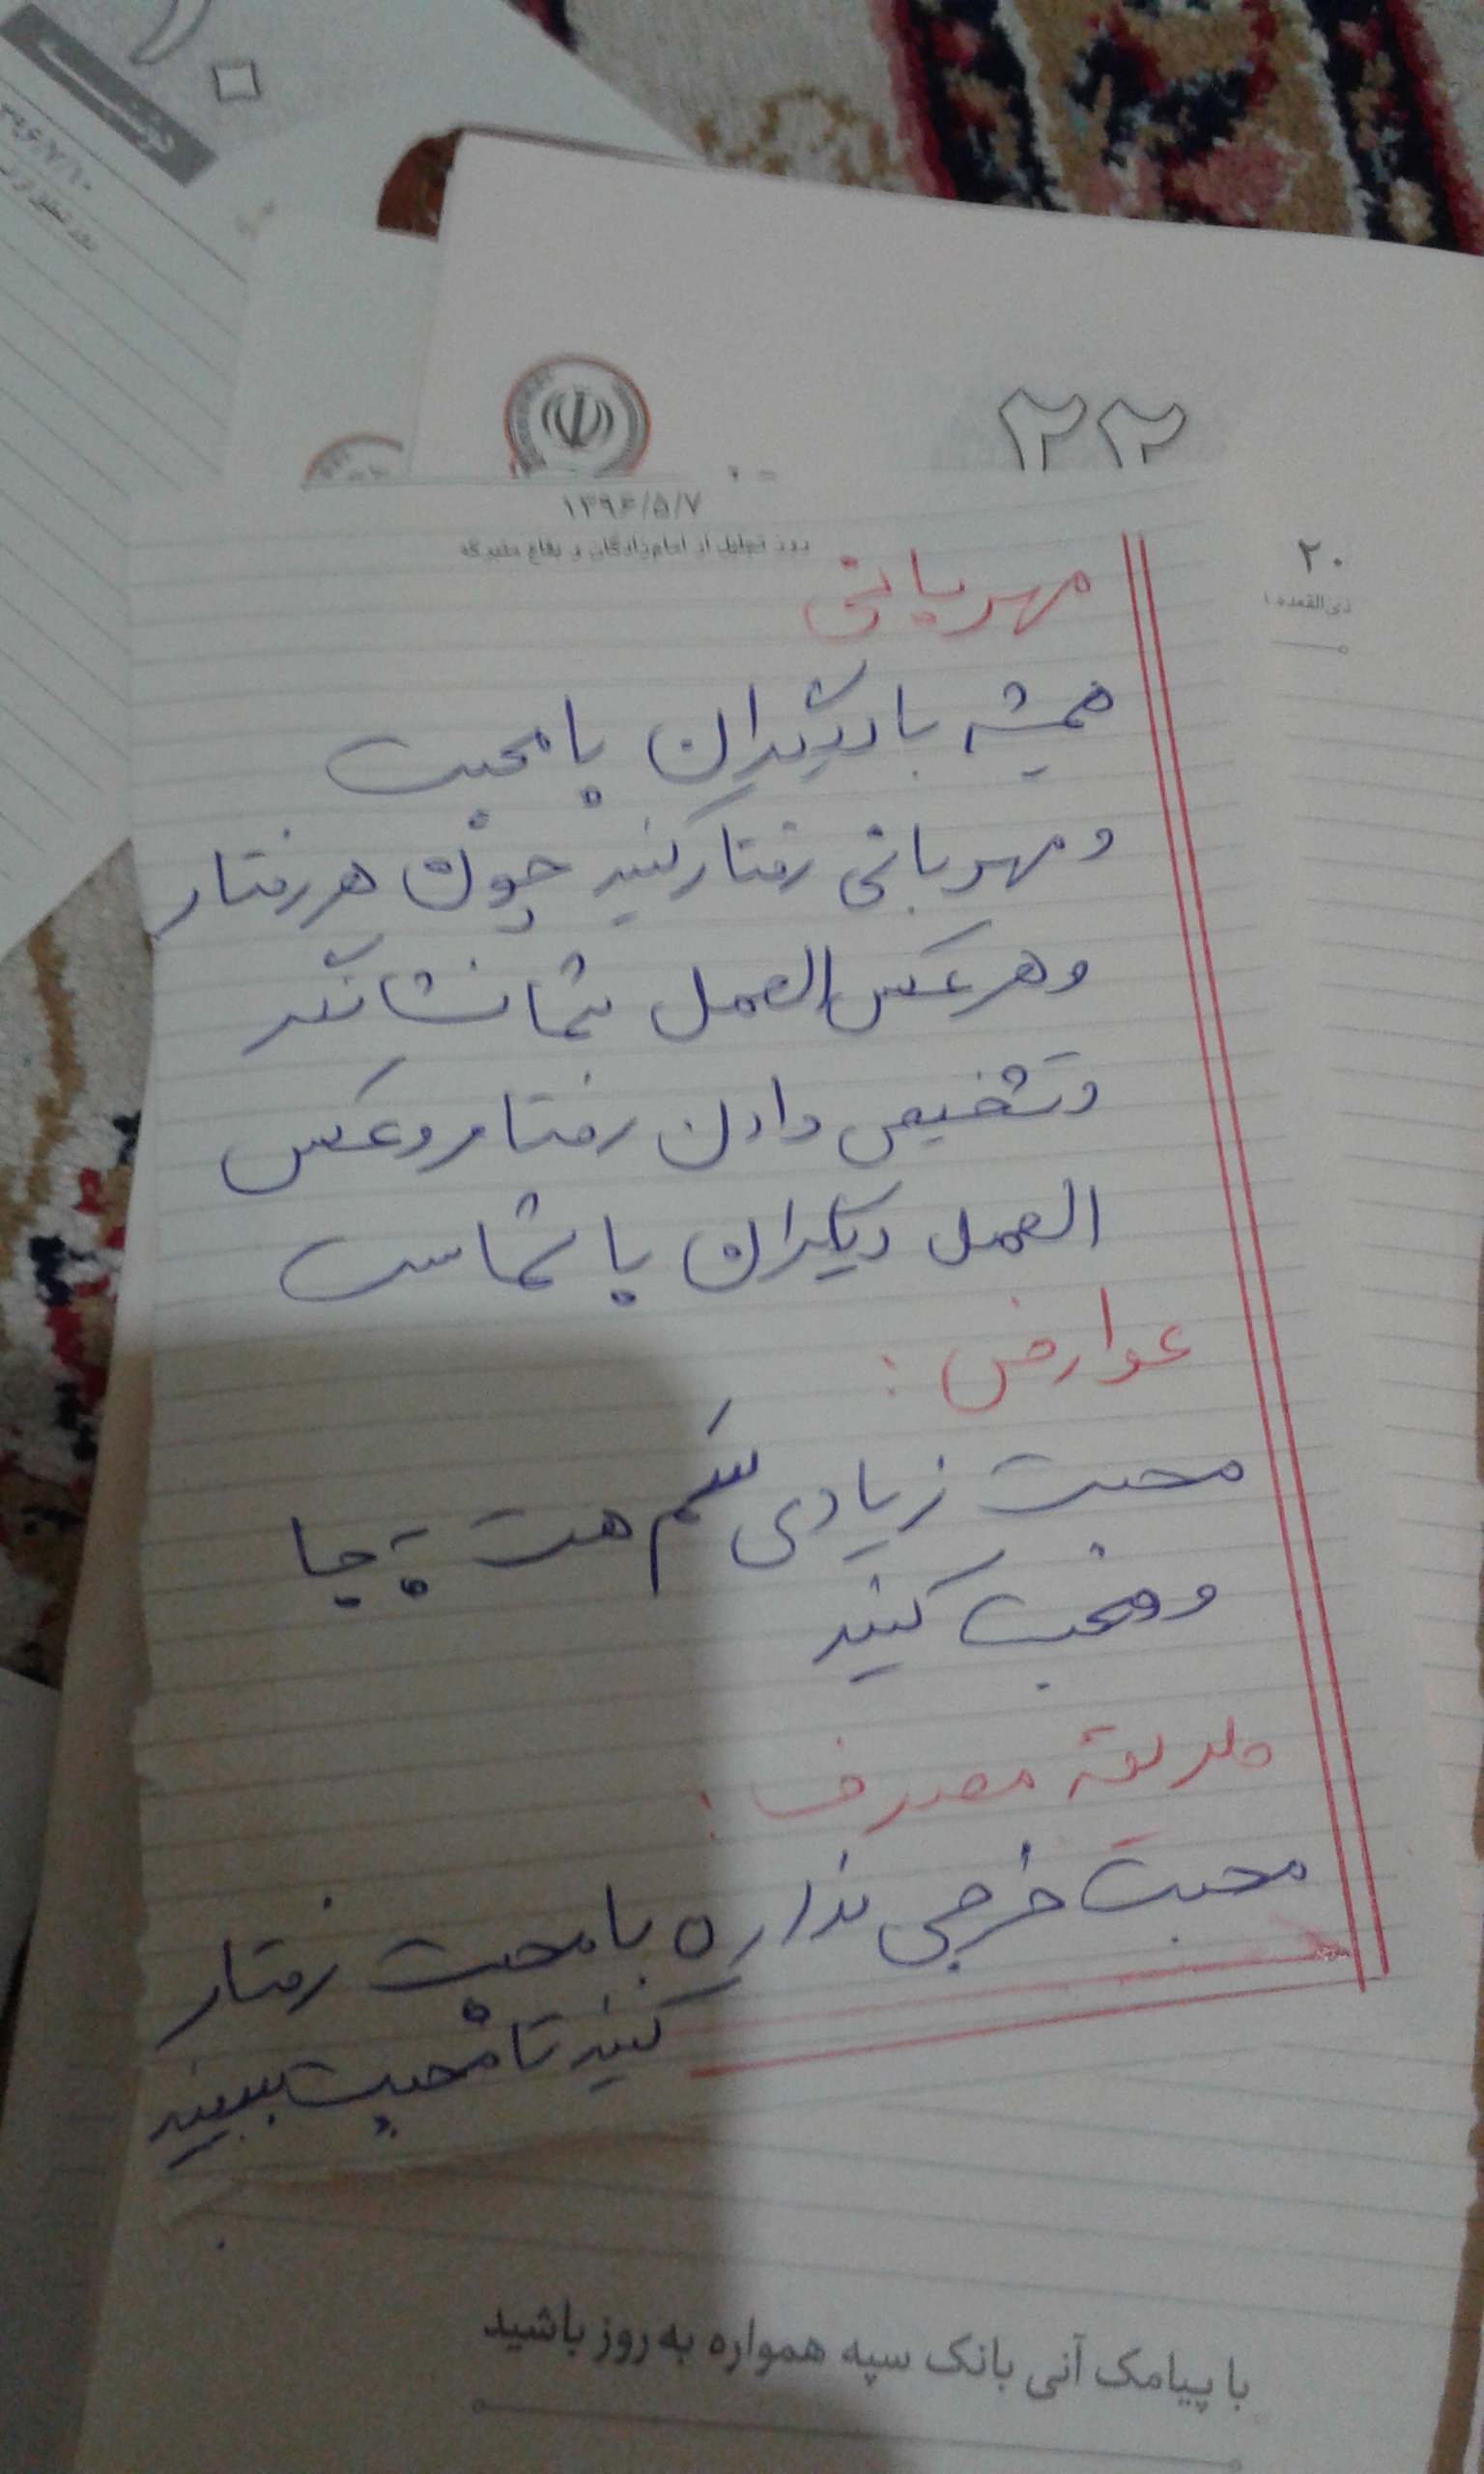 ۲۲
۱۳۹۶/۵/۷
روز تجلیل از امامزادگان و بقاع متبرکه
۲۰
ذی‌القعده
مهربانی
همیشه با دیگران با محبت
و مهربانی رفتار کنید چون هر رفتار
و هر عکس العمل شما نشانگر
و تشخیص دادن رفتار و عکس
العمل دیگران با شماست
عوارض :
محبت زیادی سم هست به جا
و محبت کنید
طریقه مصرف :
محبت خرجی نداره با محبت رفتار
کنید تا محبت ببینید
با پیامک آنی بانک سپه همواره به روز باشید